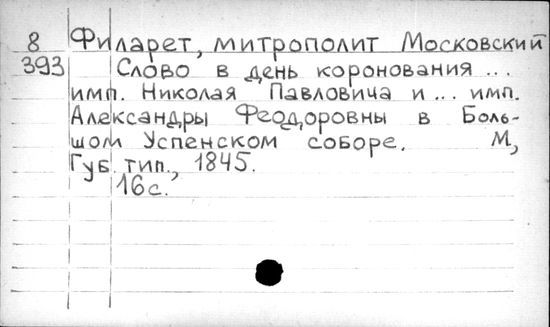 8 Филарет, митрополит Московский
393 Слово в день коронования ...
имп. Николая Павловича и ... имп.
Александры Феодоровны в Боль-
шом Успенском соборе. М,
Губ. тип., 1845.
16 с.